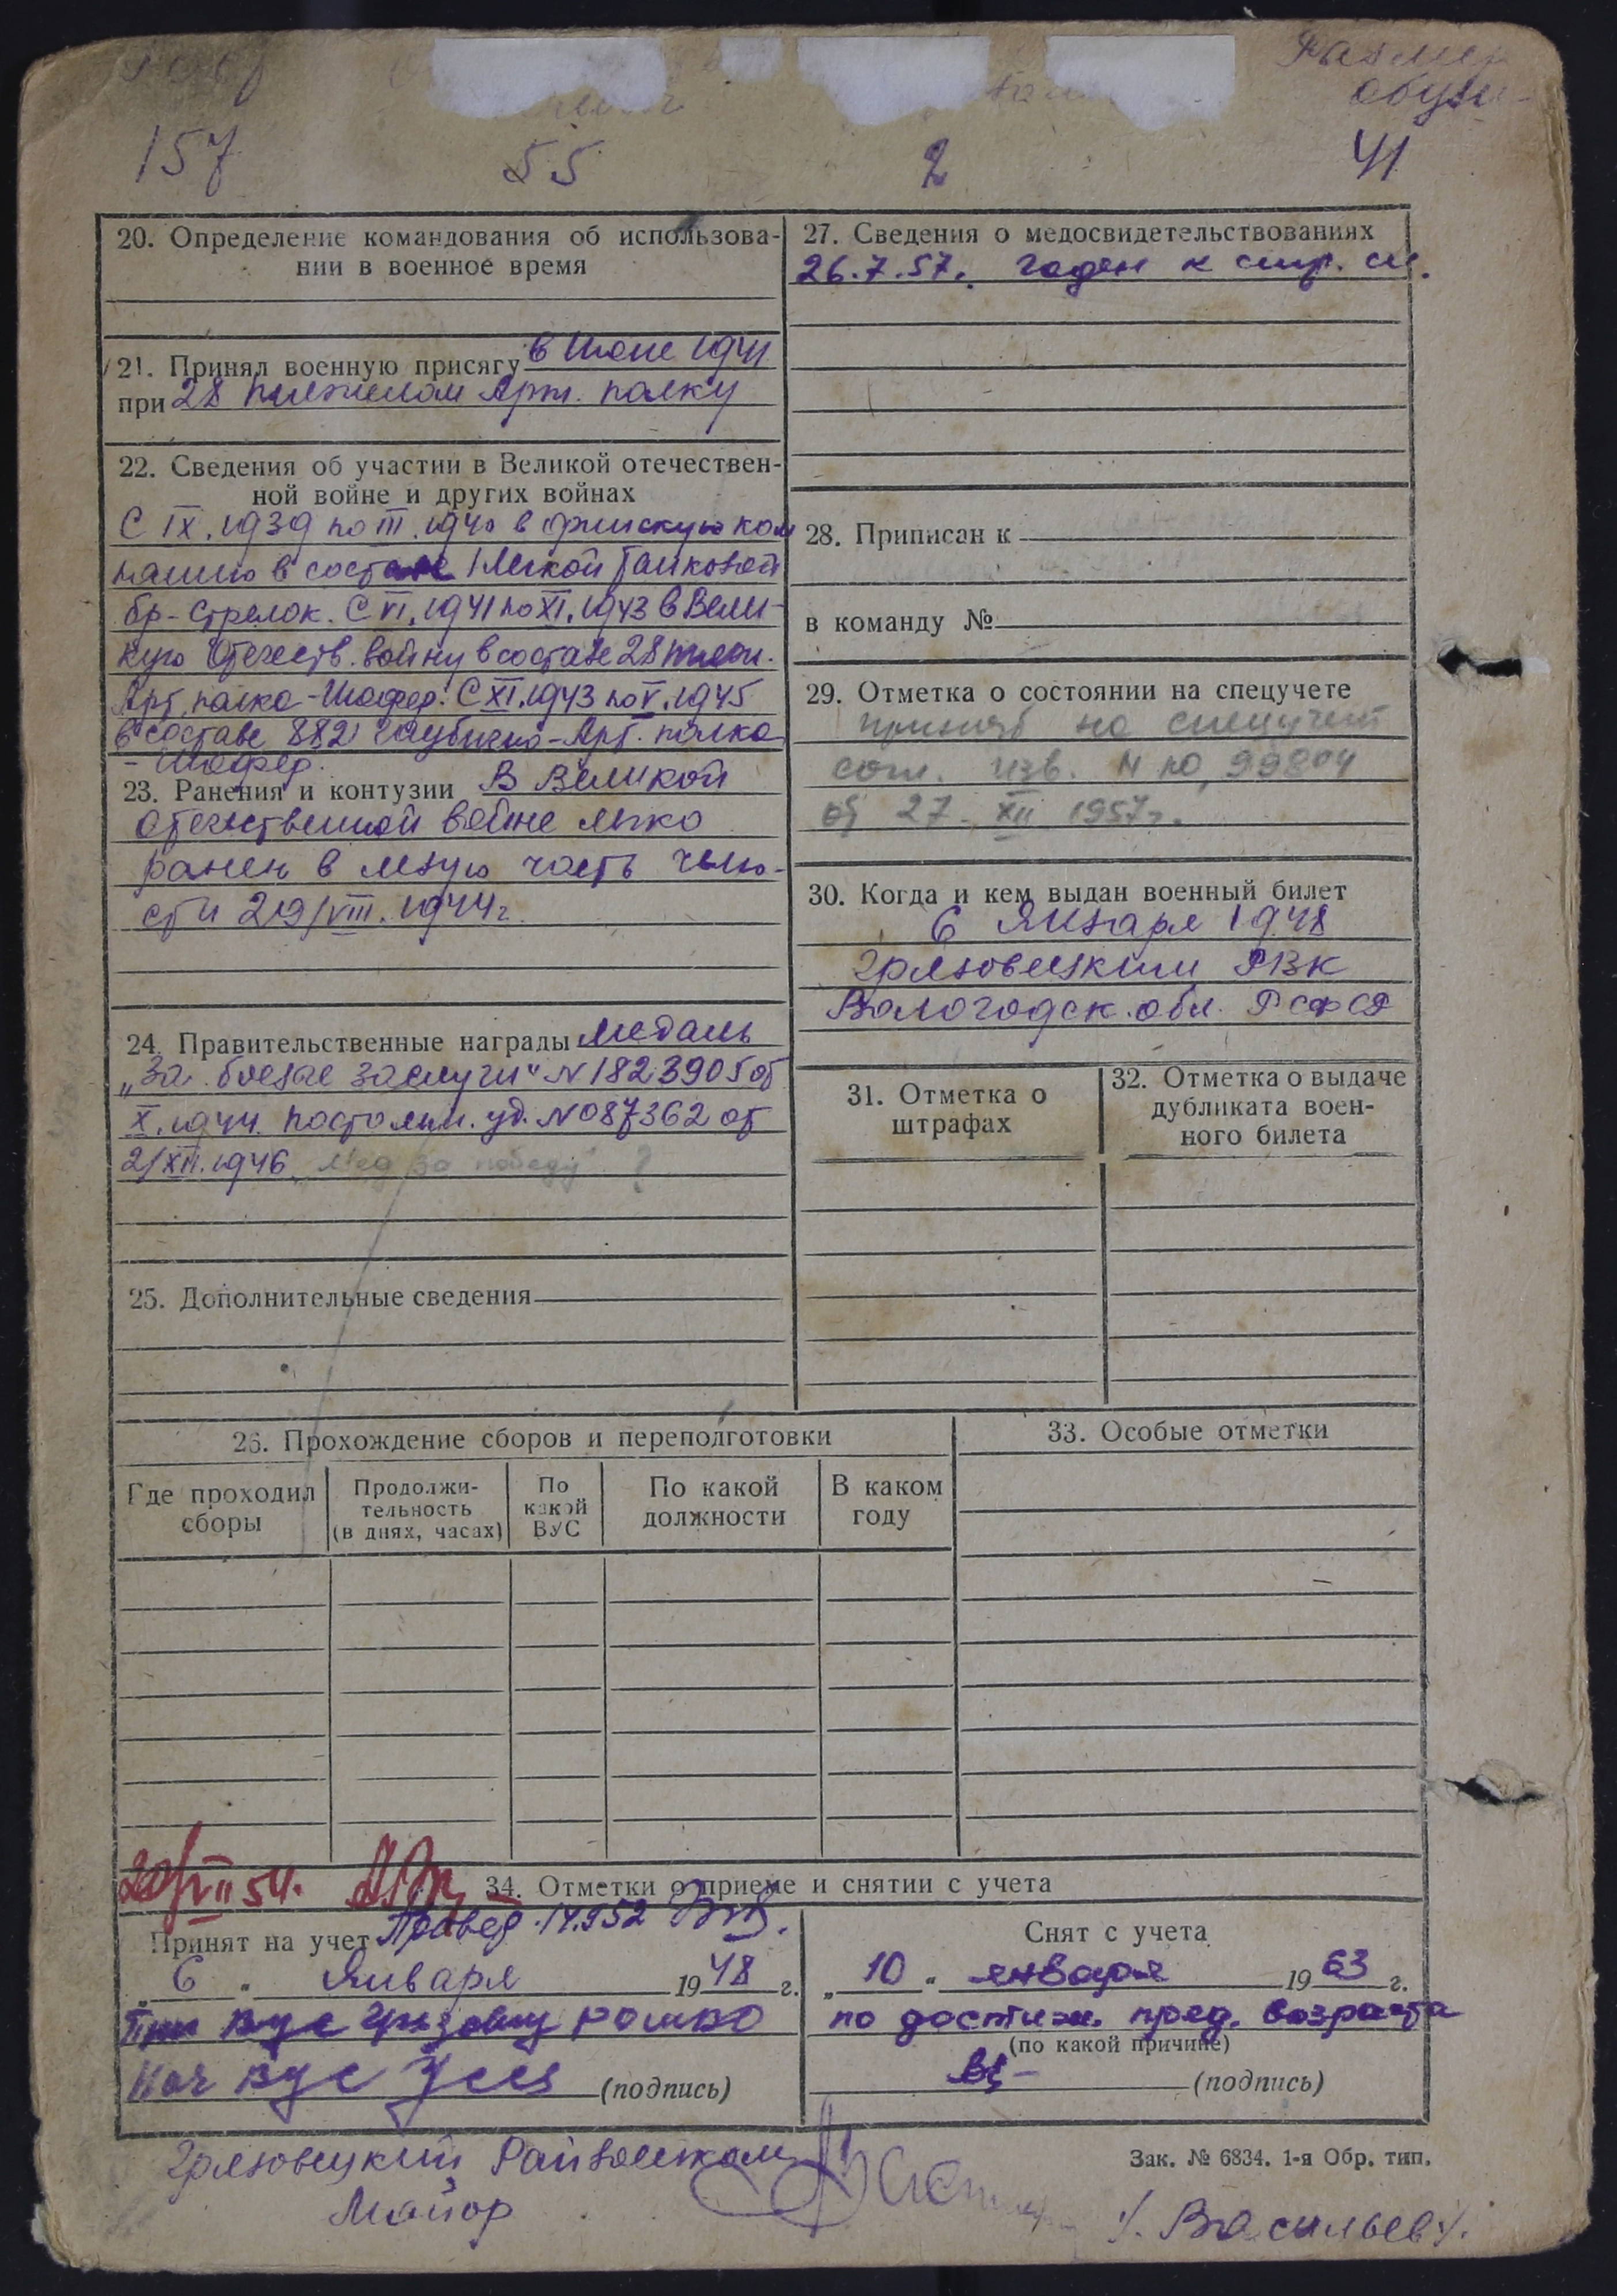 Размер
обуви
157 55 2 41
20. Определение командования об использова-
нии в военное время
21. Принял военную присягу в Июне 1941
при 28 тяжелом Арт. полку
22. Сведения об участии в Великой отечествен-
ной войне и других войнах
С IX.1939 по III.1940 в финскую кам
панию в составе 1 Легкой Танковой
бр-Стрелок. С VI.1941 по XI.1943 в Вели-
кую Отечеств. войну в составе 28 тяжел.
Арт. полка-Шофер. С XI.1943 по V.1945
в составе 882 Гаубично-Арт. полка
- Шофер.
23. Ранения и контузии В Великой
отечественной войне легко
ранен в левую часть челю-
сти 29/VIII.1944г.
24. Правительственные награды Медаль
„За боевые заслуги" N 1823905 от
X.1944. постоян. уд. N 087362 от
2/XII.1946. Мед за победу ?
25. Дополнительные сведения
26. Прохождение сборов и переподготовки
Где проходил
сборы
Продолжи-
тельность
(в днях, часах)
По
какой
ВУС
По какой
должности
В каком
году
27. Сведения о медосвидетельствованиях
26.7.57. годен к стр. сл.
28. Приписан к
в команду №
29. Отметка о состоянии на спецучете
принят на спецучет
согл. изв. N 99804
от 27. XII 1957г.
30. Когда и кем выдан военный билет
6 Января 1948
Грязовецким РВК
Вологодск. обл. РСФСР
31. Отметка о
штрафах
32. Отметка о выдаче
дубликата воен-
ного билета
33. Особые отметки
54.
34. Отметки о приеме и снятии с учета
Принят на учет Провед.
„ 6 " Января 1948 г.
ВУС
Нач ВУС (подпись)
Снят с учета
„ 10 " января 1963 г.
по достиж. пред. возраста
(по какой причине)
(подпись)
Грязовецкий Райвоенком
Майор
/. Васильев /.
Зак. № 6834. 1-я Обр. тип.